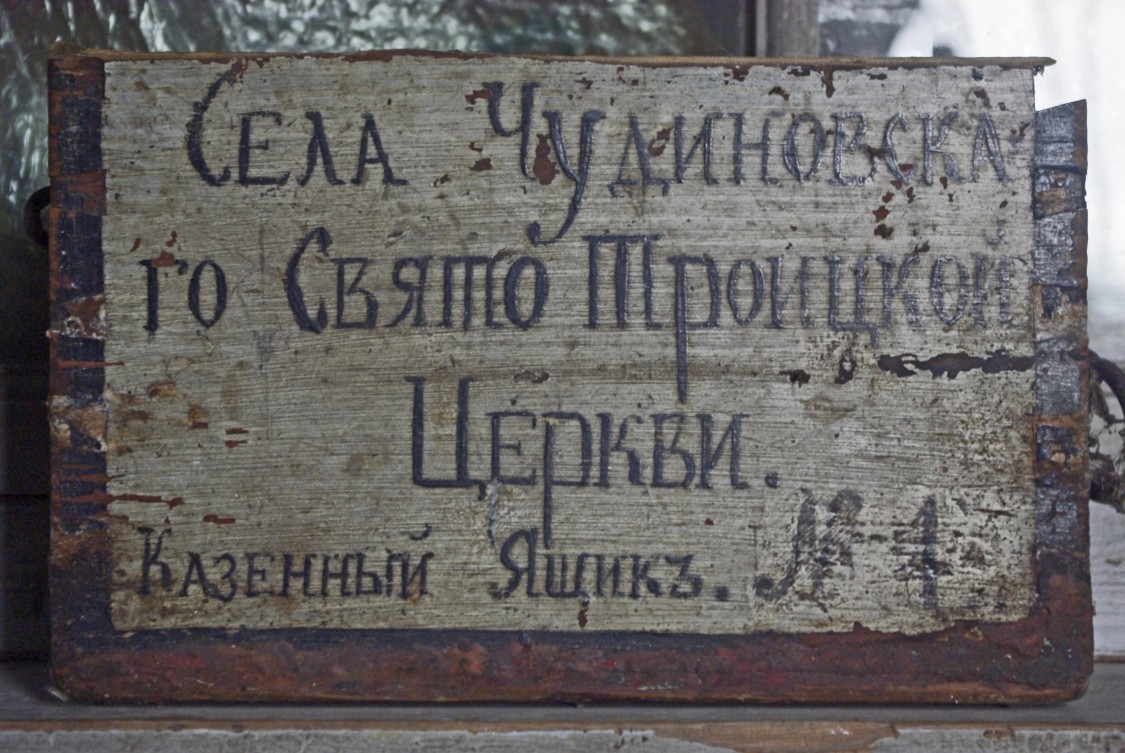 Села Чудиновска
го Свято Троицкой
Церкви.
Казенный Ящикъ. № 1